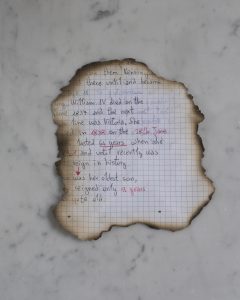 them
there until and became
William IV died on the
1837 and the next
line was Victoria, she
in 1838 on the 28th June
lasted 64 years, when she
and until recently was
reign in history
was her oldest son,
reigned only 9 years
quite old